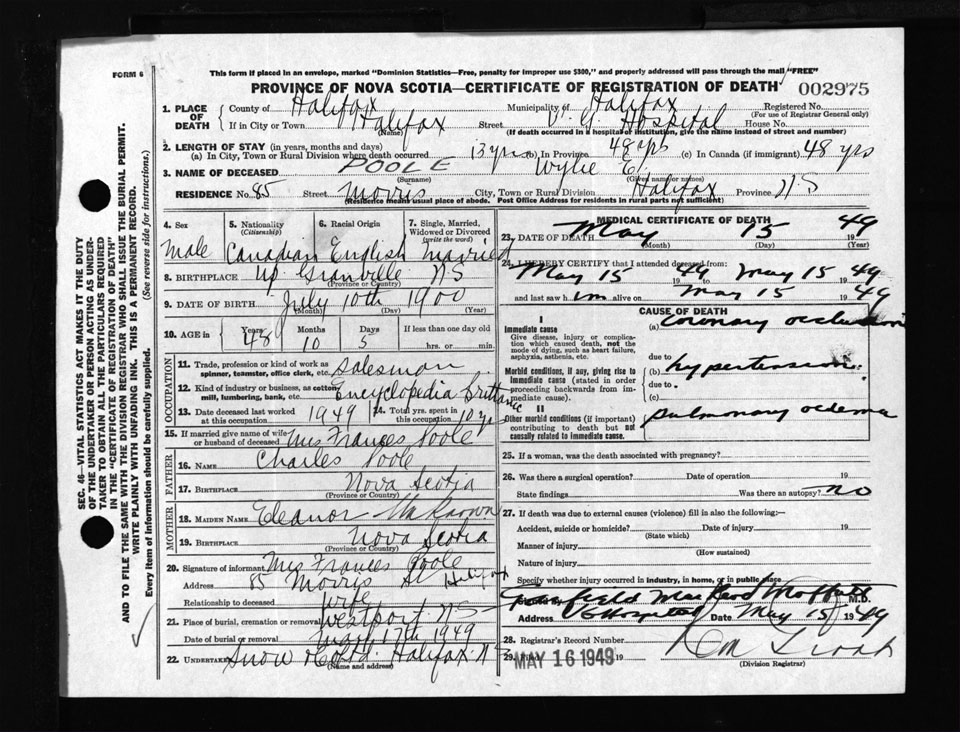 FORM 6
This form if placed in an envelope, marked "Dominion Statistics—Free, penalty for improper use $300," and properly addressed will pass through the mail "FREE"
PROVINCE OF NOVA SCOTIA—CERTIFICATE OF REGISTRATION OF DEATH 002975
1. PLACE OF DEATH County of Halifax Municipality of Halifax Registered No.
(For use of Registrar General only)
If in City or Town Halifax Street V. G. Hospital House No.
(Name) (If death occurred in a hospital or institution, give the name instead of street and number)
2. LENGTH OF STAY (in years, months and days)
(a) In City, Town or Rural Division where death occurred 13 yrs (b) In Province 48 yrs (c) In Canada (if immigrant) 48 yrs
3. NAME OF DECEASED POOLE Wylie E.
(Surname) (Given names or names)
RESIDENCE No. 85 Street Morris City, Town or Rural Division Halifax Province N.S
(Residence means usual place of abode. Post Office Address for residents in rural parts not sufficient)
4. Sex 5. Nationality (Citizenship) 6. Racial Origin 7. Single, Married, Widowed or Divorced (write the word)
Male Canadian English Married
8. BIRTHPLACE Up. Granville NS
(Province or Country)
9. DATE OF BIRTH July 10th 1900
(Month) (Day) (Year)
10. AGE in Years Months Days If less than one day old
48 10 5 hrs. or min.
OCCUPATION
11. Trade, profession or kind of work as spinner, teamster, office clerk, etc. Salesman
12. Kind of industry or business, as cotton mill, lumbering, bank, etc. Encyclopedia Brittanic
13. Date deceased last worked at this occupation 1949 14. Total yrs. spent in this occupation 10 yrs
15. If married give name of wife or husband of deceased Mrs Frances Poole
FATHER
16. NAME Charles Poole
17. BIRTHPLACE Nova Scotia
(Province or Country)
MOTHER
18. MAIDEN NAME Eleanor Unknown
19. BIRTHPLACE Nova Scotia
(Province or Country)
20. Signature of informant Mrs Frances Poole
Address 85 Morris St Halifax
Relationship to deceased wife
21. Place of burial, cremation or removal Westport NS
Date of burial or removal May 17th 1949
22. UNDERTAKER Snow & Co Ltd. Halifax NS
(Name and address)
MEDICAL CERTIFICATE OF DEATH
23. DATE OF DEATH May 15 1949
(Month) (Day) (Year)
24. I HEREBY CERTIFY that I attended deceased from:
May 15 1949 to May 15 1949
and last saw him alive on May 15 1949
CAUSE OF DEATH
I
Immediate cause (a) coronary occlusion
Give disease, injury or complication which caused death, not the mode of dying, such as heart failure, asphyxia, asthenia, etc.
due to
Morbid conditions, if any, giving rise to immediate cause (stated in order proceeding backwards from immediate cause). (b) hypertension
due to
(c)
II
Other morbid conditions (if important) contributing to death but not causally related to immediate cause. pulmonary oedema
25. If a woman, was the death associated with pregnancy?
26. Was there a surgical operation? Date of operation 19
State findings Was there an autopsy? no
27. If death was due to external causes (violence) fill in also the following:—
Accident, suicide or homicide? Date of injury 19
(State which)
Manner of injury
(How sustained)
Nature of injury
Specify whether injury occurred in industry, in home, or in public place
Garfield MacLeod Moffatt M.D.
Address Date May 15 1949
28. Registrar's Record Number
29. MAY 16 1949 19
(Division Registrar)
SEC. 46—VITAL STATISTICS ACT MAKES IT THE DUTY
OF THE UNDERTAKER OR PERSON ACTING AS UNDER-
TAKER TO OBTAIN ALL THE PARTICULARS REQUIRED
IN THE "CERTIFICATE OF REGISTRATION OF DEATH"
AND TO FILE THE SAME WITH THE DIVISION REGISTRAR WHO SHALL ISSUE THE BURIAL PERMIT.
WRITE PLAINLY WITH UNFADING INK. THIS IS A PERMANENT RECORD.
Every item of information should be carefully supplied. (See reverse side for instructions.)